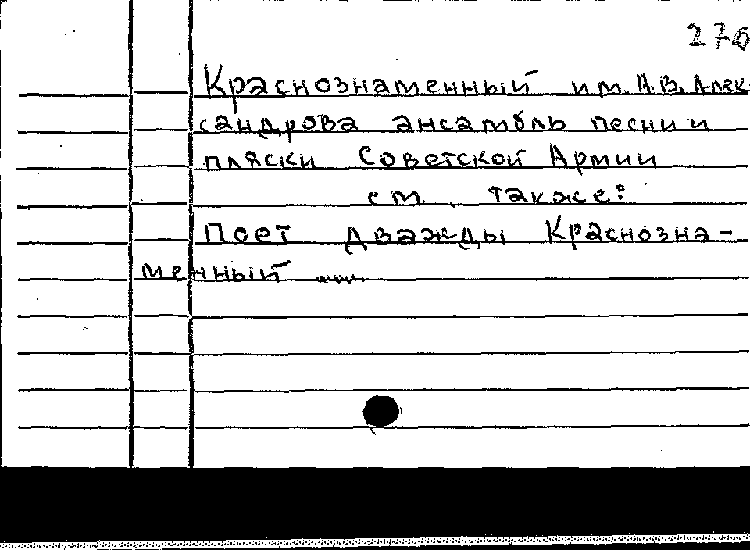 276
Краснознаменный им. А.В. Алек-
сандрова ансамбль песни и
пляски Советской Армии
см. также:
Поет дважды Краснозна-
менный ...